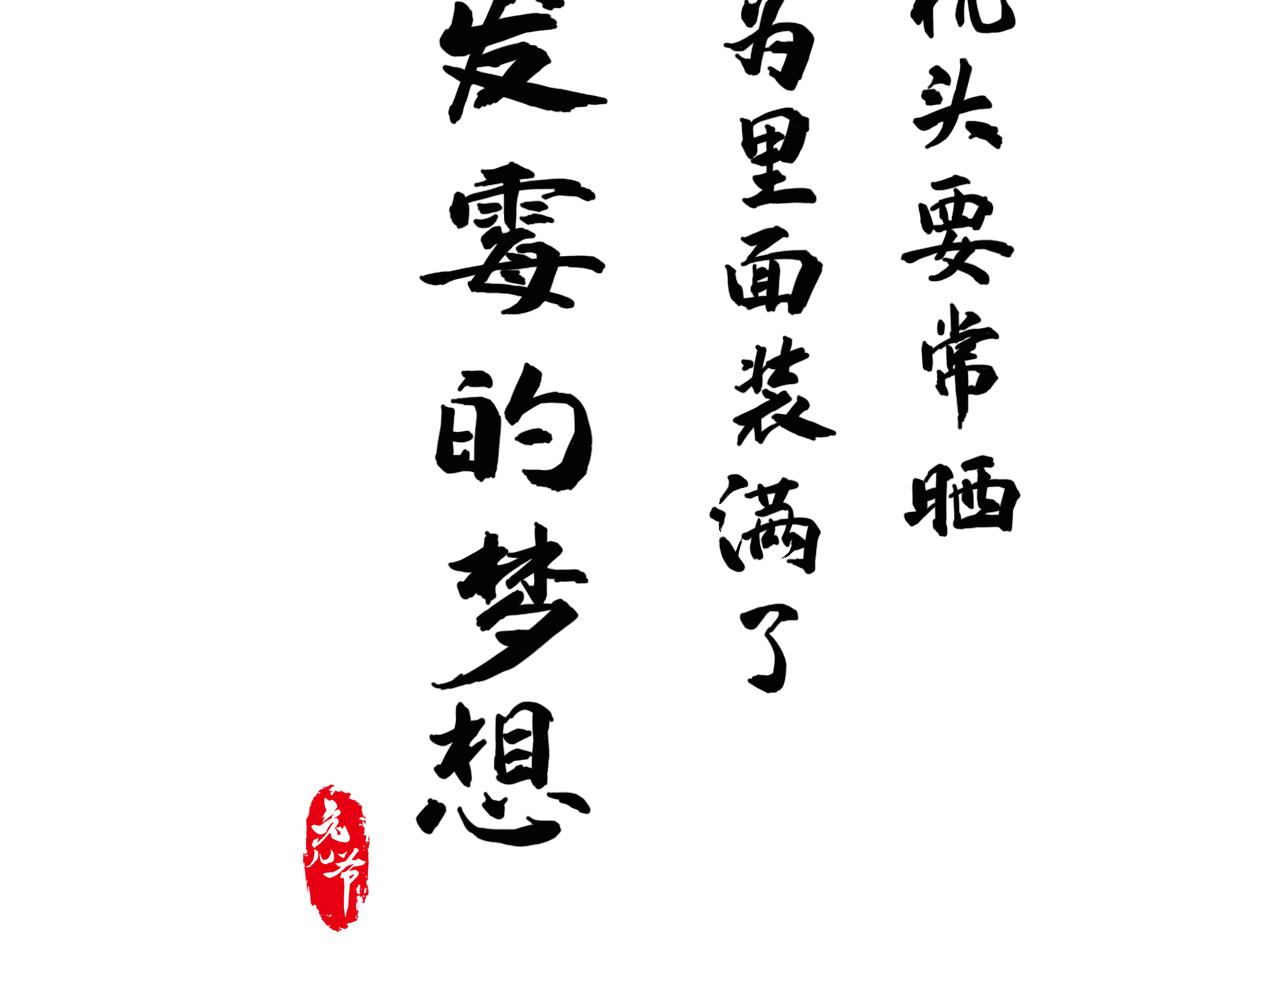 枕头要常晒
为里面装满了
发霉的梦想